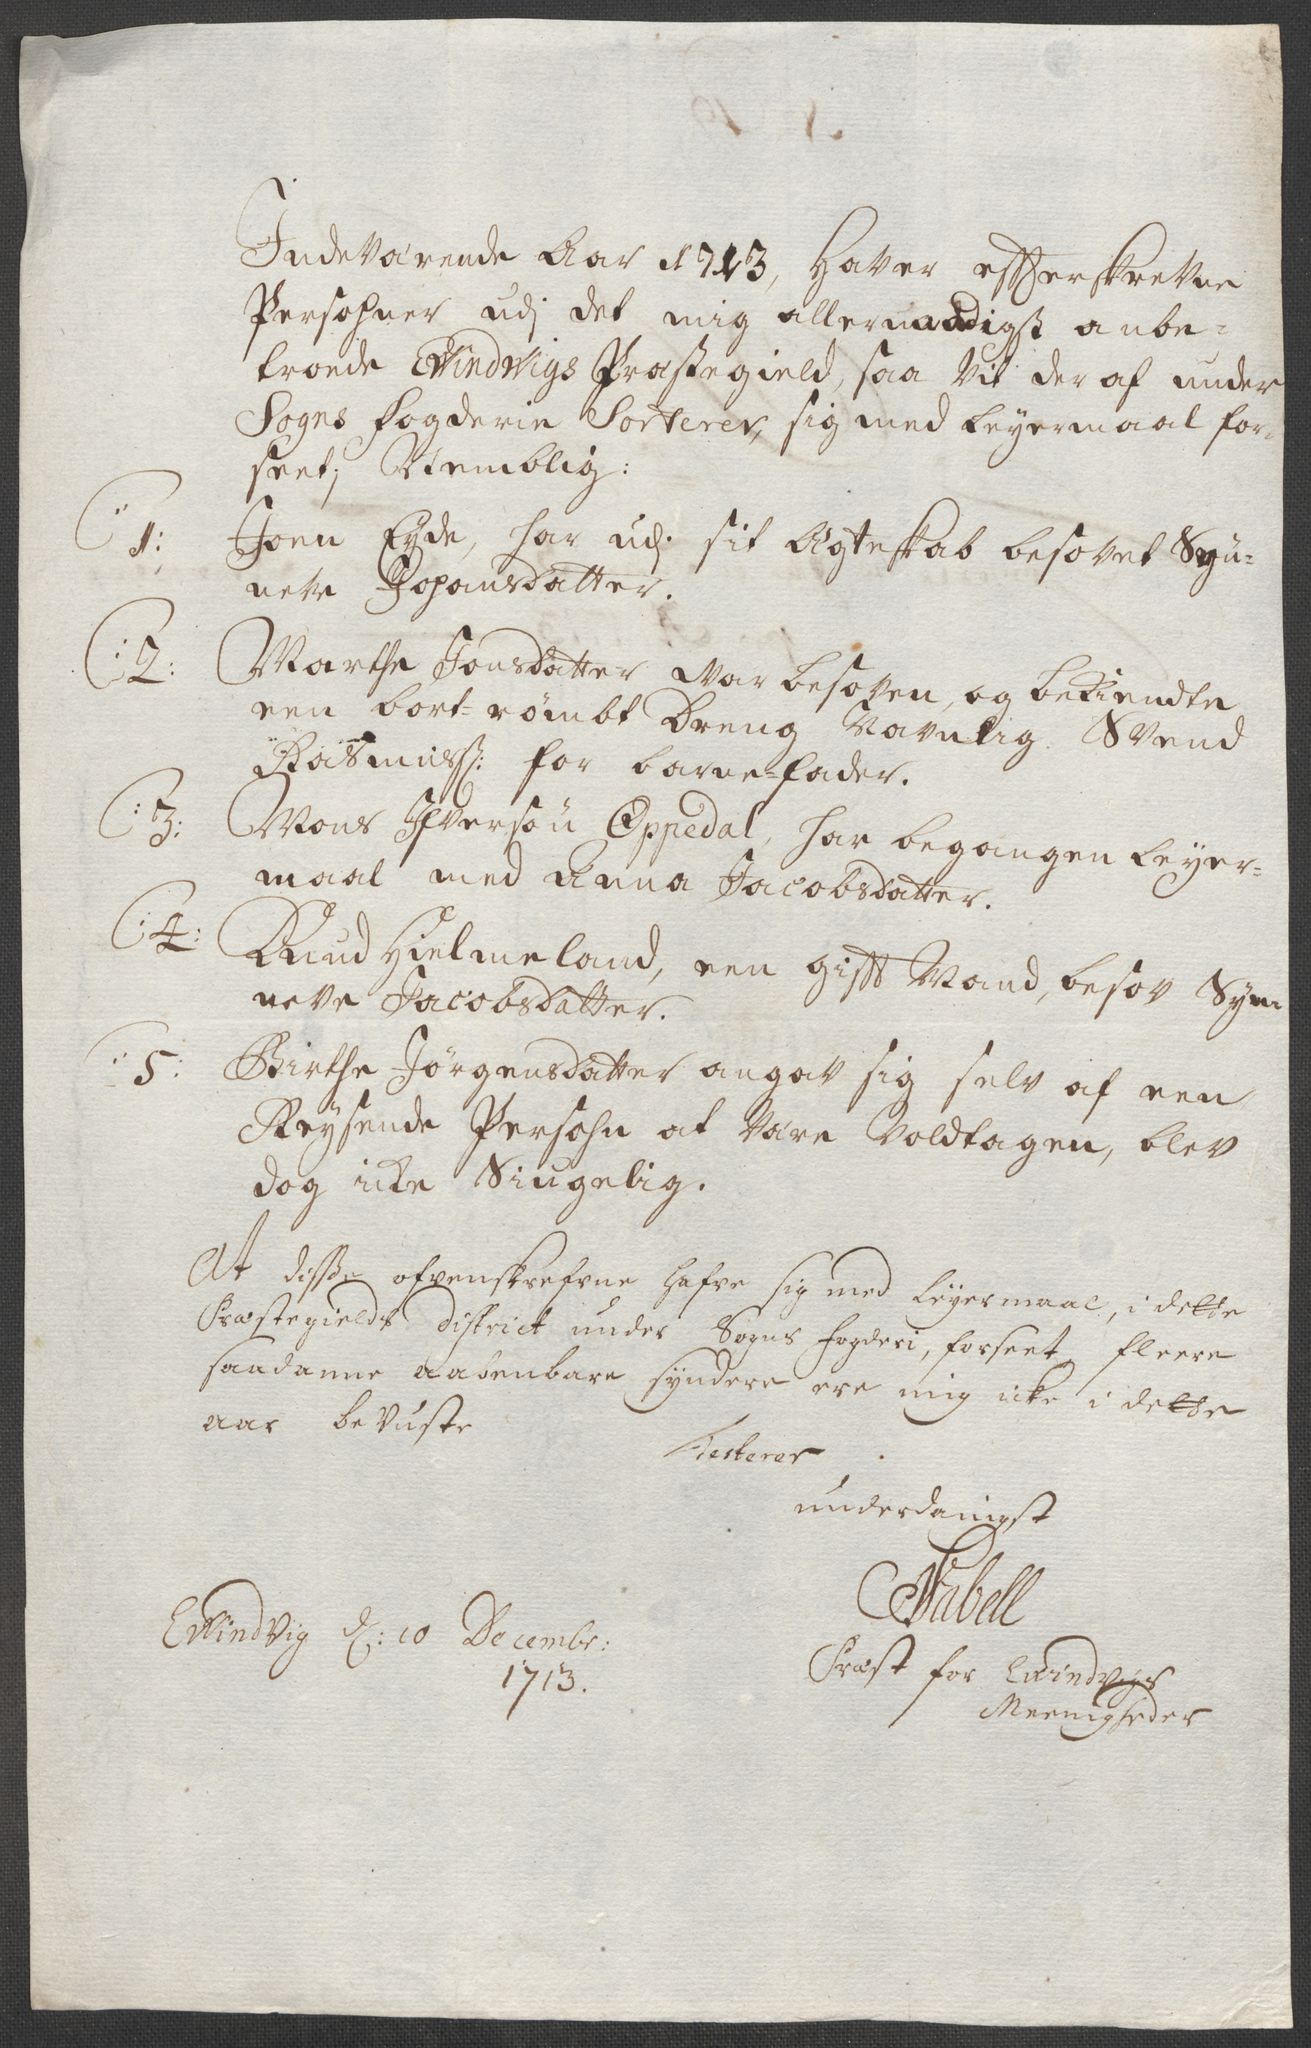 Indeværende Aar 1713, Haver efterskrevne
Persohner udj det mig allernaadigst anbe-
troede Evindvigs Præstegield, saa vit der af under
Sogns Fogderie Sorterer, sig med Leyermaal for-
seet, Nemblig:
1: Joen Eyde, har udj sit Ægteskab besovet Syn-
neve Johansdatter.
2: Marthe Jonsdatter var besoven, og bekiendte
een bort-römbt Dreng Navnlig Svend
Rasmuss: for barne-fader.
3: Mons Ifversön Oppedal, har begangen Leyer-
maal med Anna Jacobsdatter.
4: Knud Hielmeland, een gift Mand, besov Syn-
neve Jacobsdatter.
5: Birthe Jörgensdatter angav sig selv af een
Reysende Persohn at være Voldtagen, blev
dog icke Siugelig.
At disse ofvenskrefvne hafve sig med Leyermaal, i dette
Præstegields District under Sogns fogderi, forseet, fleere
saadanne aabenbare syndere ere mig icke i dette
aar bevuste
Testerer
underdanigst
Fabell
Evindvig d: 10 Decembr:
1713.
Præst for Evindvigs
Meenigheder